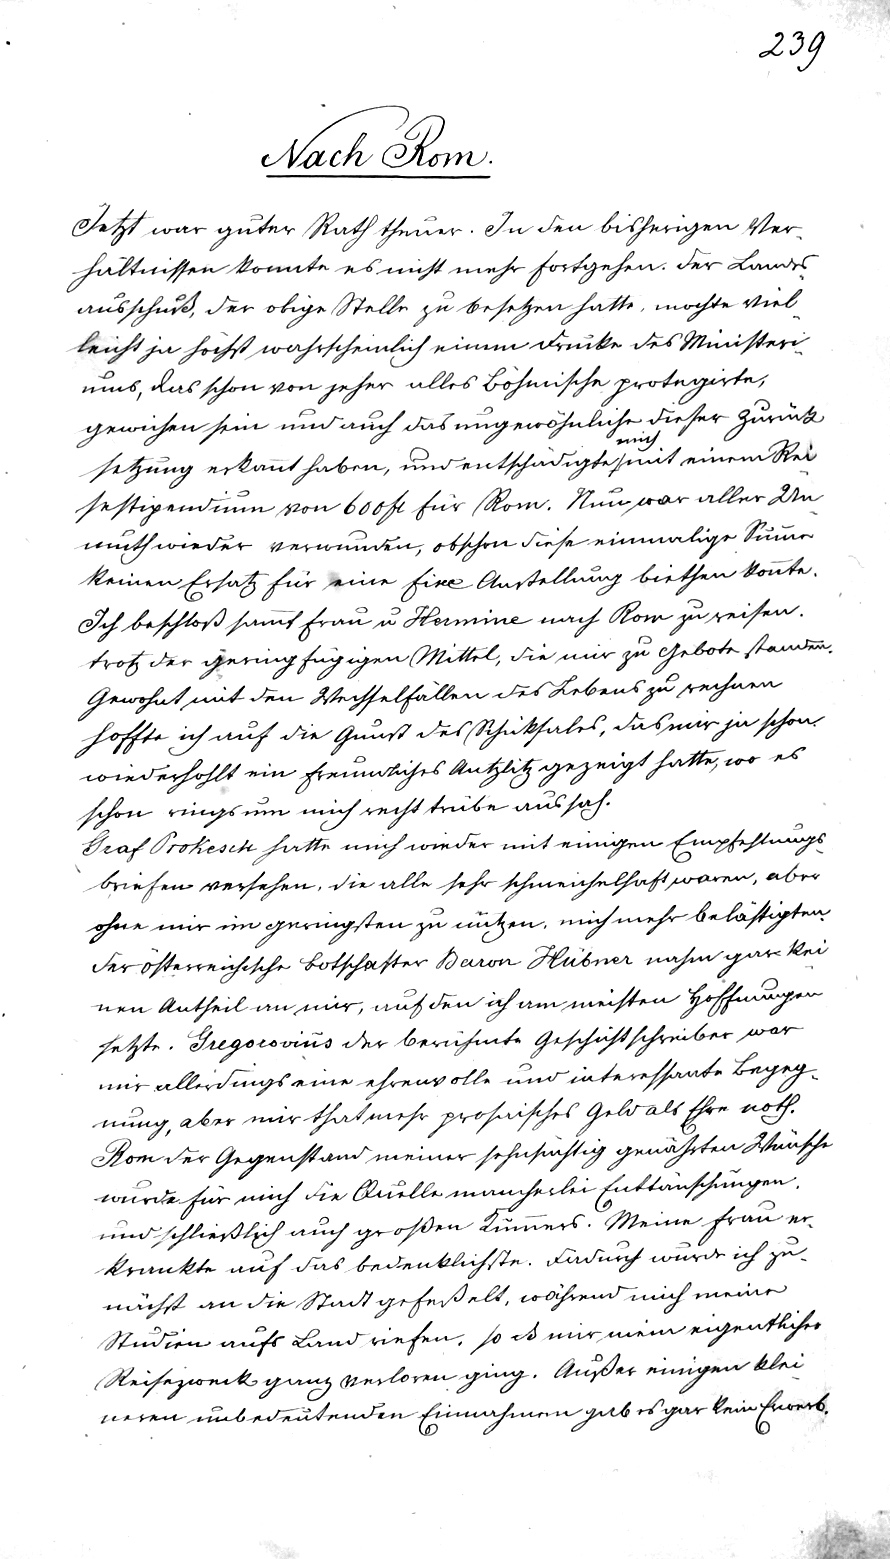 239
Nach Rom.
Jetzt war guter Rath theuer. In den bisherigen Ver-
hältnissen konnte es nicht mehr fortgehen. Der Landes-
ausschuß, der obige Stelle zu besetzen hatte, mochte viel-
leicht ja höchst wahrscheinlich einem Drucke des Ministeri-
ums, das schon von jeher alles Böhmische protegirte,
gewichen sein und auch das ungewöhnliche dieser Zurück
setzung erkannt haben, und entschädigte mich mit einem Rei
sestipendium von 600 fl für Rom. Nun war aller Un-
muth wieder verwunden, obschon diese einmalige Summe
keinen Ersatz für eine fixe Anstellung biethen konnte.
Ich beschloß sammt Frau u Hermine nach Rom zu reisen.
trotz der geringfügigen Mittel, die mir zu Gebote standen.
Gewohnt mit den Wechselfällen des Lebens zu rechnen
hoffte ich auf die Gunst des Schiksales, das mir ja schon
wiederhohlt ein freundliches Antzlitz gezeigt hatte, wo es
schon rings um mich recht trübe aussah.
Graf Prokesch hatte mich wieder mit einigen Empfehlungs-
briefen versehen, die alle sehr schmeichelhaft waren, aber
ohne mir im geringsten zu nützen, mich mehr belästigten.
Der österreichische Botschafter Baron Hübner nahm gar kei
nen Antheil an mir, auf den ich am meisten Hoffnungen
setzte. Gregorovius der berühmte Geschichtschreiber war
mir allerdings eine ehrenvolle und interessante Begeg-
nung, aber mir that mehr prosaisches Geld als Ehre noth.
Rom der Gegenstand meiner sehnsüchtig genährten Wünsche
wurde für mich die Quelle mancherlei Enttäuschungen,
und schließlich auch großen Kummers. Meine Frau er-
krankte auf das bedenklichste. Dadurch wurde ich zu-
nächst an die Stadt gefeßelt, während mich meine
Studien aufs Land riefen, so daß mir mein eigentlicher
Reisezweck ganz verloren ging. Außer einigen klei
neren unbedeutenden Einnahmen gab es gar kein Erwerb.